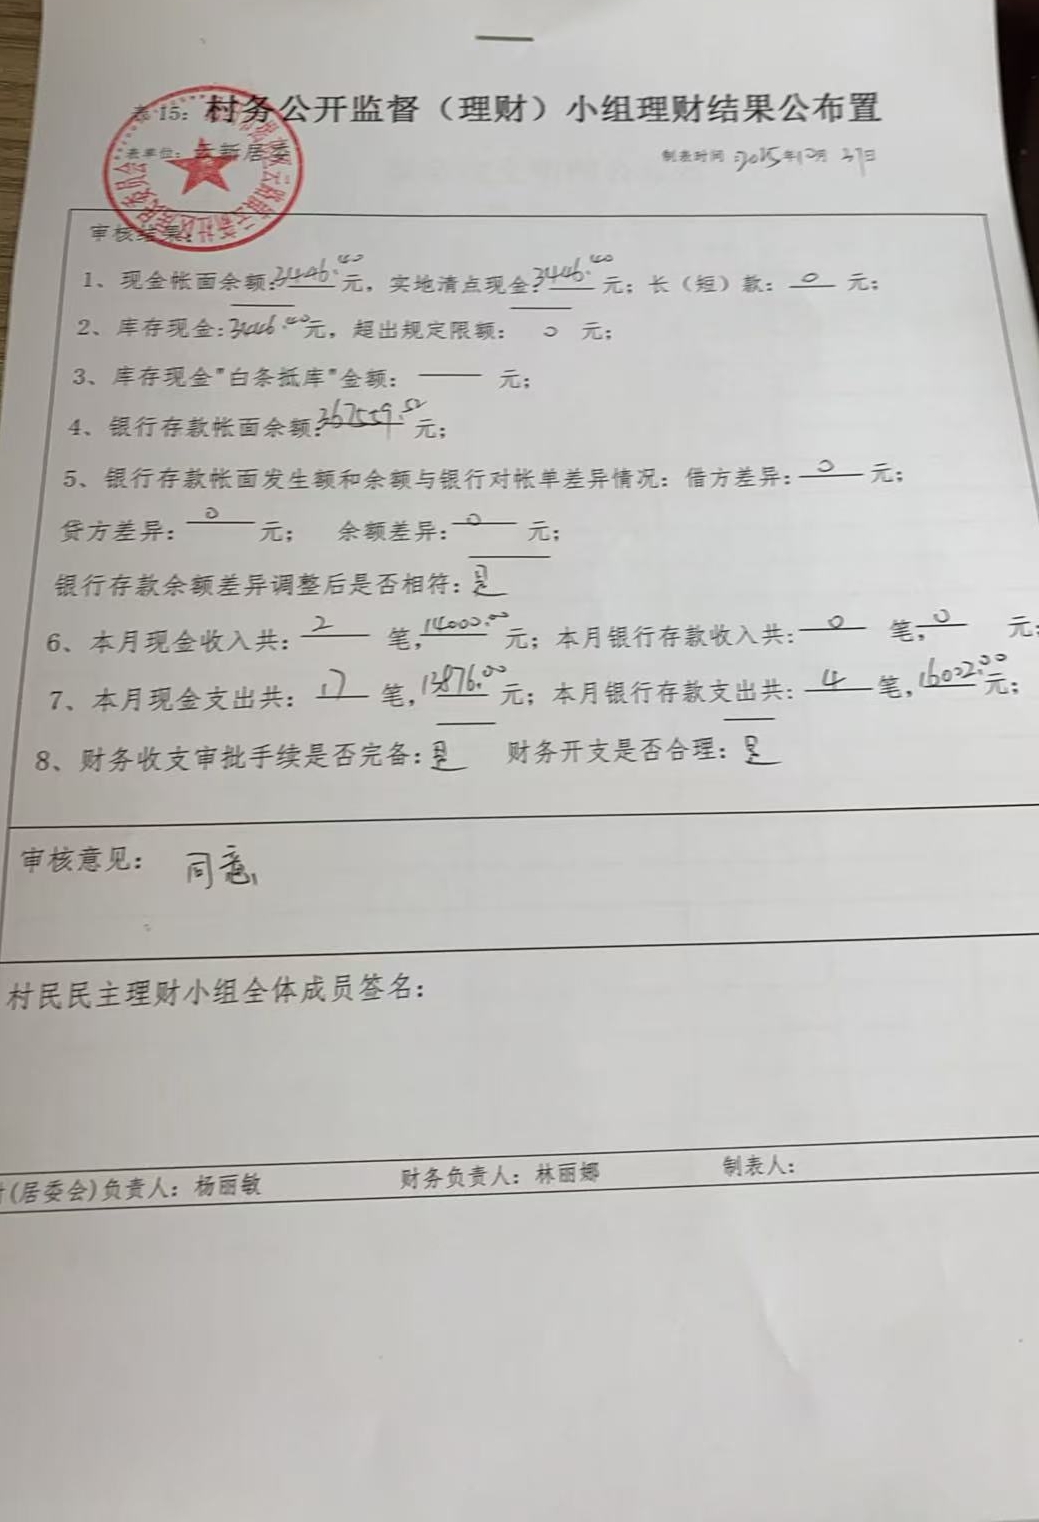 表15：村务公开监督（理财）小组理财结果公布置
表单位：云新居委 制表时间：2025年10月27日
审核结果：
1、现金帐面余额：3446.40元，实地清点现金：3446.40元；长（短）款：0元；
2、库存现金：3446.40元，超出规定限额：0元；
3、库存现金"白条抵库"金额：——元；
4、银行存款帐面余额：367559.52元；
5、银行存款帐面发生额和余额与银行对帐单差异情况：借方差异：0元；
贷方差异：0元； 余额差异：0元；
银行存款余额差异调整后是否相符：是
6、本月现金收入共：2笔，14000.00元；本月银行存款收入共：0笔，0元；
7、本月现金支出共：17笔，13876.00元；本月银行存款支出共：4笔，16002.00元；
8、财务收支审批手续是否完备：是 财务开支是否合理：是
审核意见：同意
村民民主理财小组全体成员签名：
村(居委会)负责人：杨丽敏 财务负责人：林丽娜 制表人：